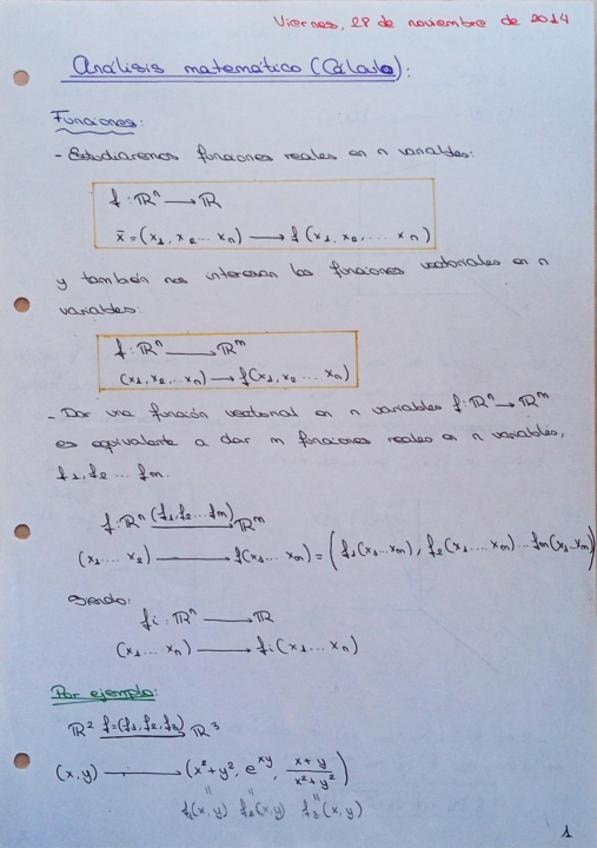 Viernes, 28 de noviembre de 2014
Análisis matemático (Cálculo):
Funciones:
- Estudiaremos funciones reales en n variables:
f : ℝⁿ ⟶ ℝ
x̄ = (x₁, x₂ ... xₙ) ⟶ f (x₁, x₂, .... xₙ)
y también nos interesan las funciones vectoriales en n
variables:
f : ℝⁿ ⟶ ℝᵐ
(x₁, x₂, ... xₙ) ⟶ f(x₁, x₂ ... xₙ)
- Dar una función vectorial en n variables f: ℝⁿ → ℝᵐ
es equivalente a dar m funciones reales en n variables,
f₁, f₂ ... fm.
f: ℝⁿ (f₁, f₂ ... fm) ⟶ ℝᵐ
(x₁ .... x₂) ⟶ f(x₁ ... xm) = (f₁(x₁ ... xm), f₂(x₁ .... xm) ... fm(x₁ ... xm))
Siendo:
fi : ℝⁿ ⟶ ℝ
(x₁ ... xₙ) ⟶ fi (x₁ ... xₙ)
Por ejemplo:
ℝ² f=(f₁, f₂, f₃) ⟶ ℝ³
(x, y) ⟶ (x² + y², e^xy, (x + y)/(x² + y²))
" " "
f₁(x, y) f₂(x, y) f₃(x, y)
1